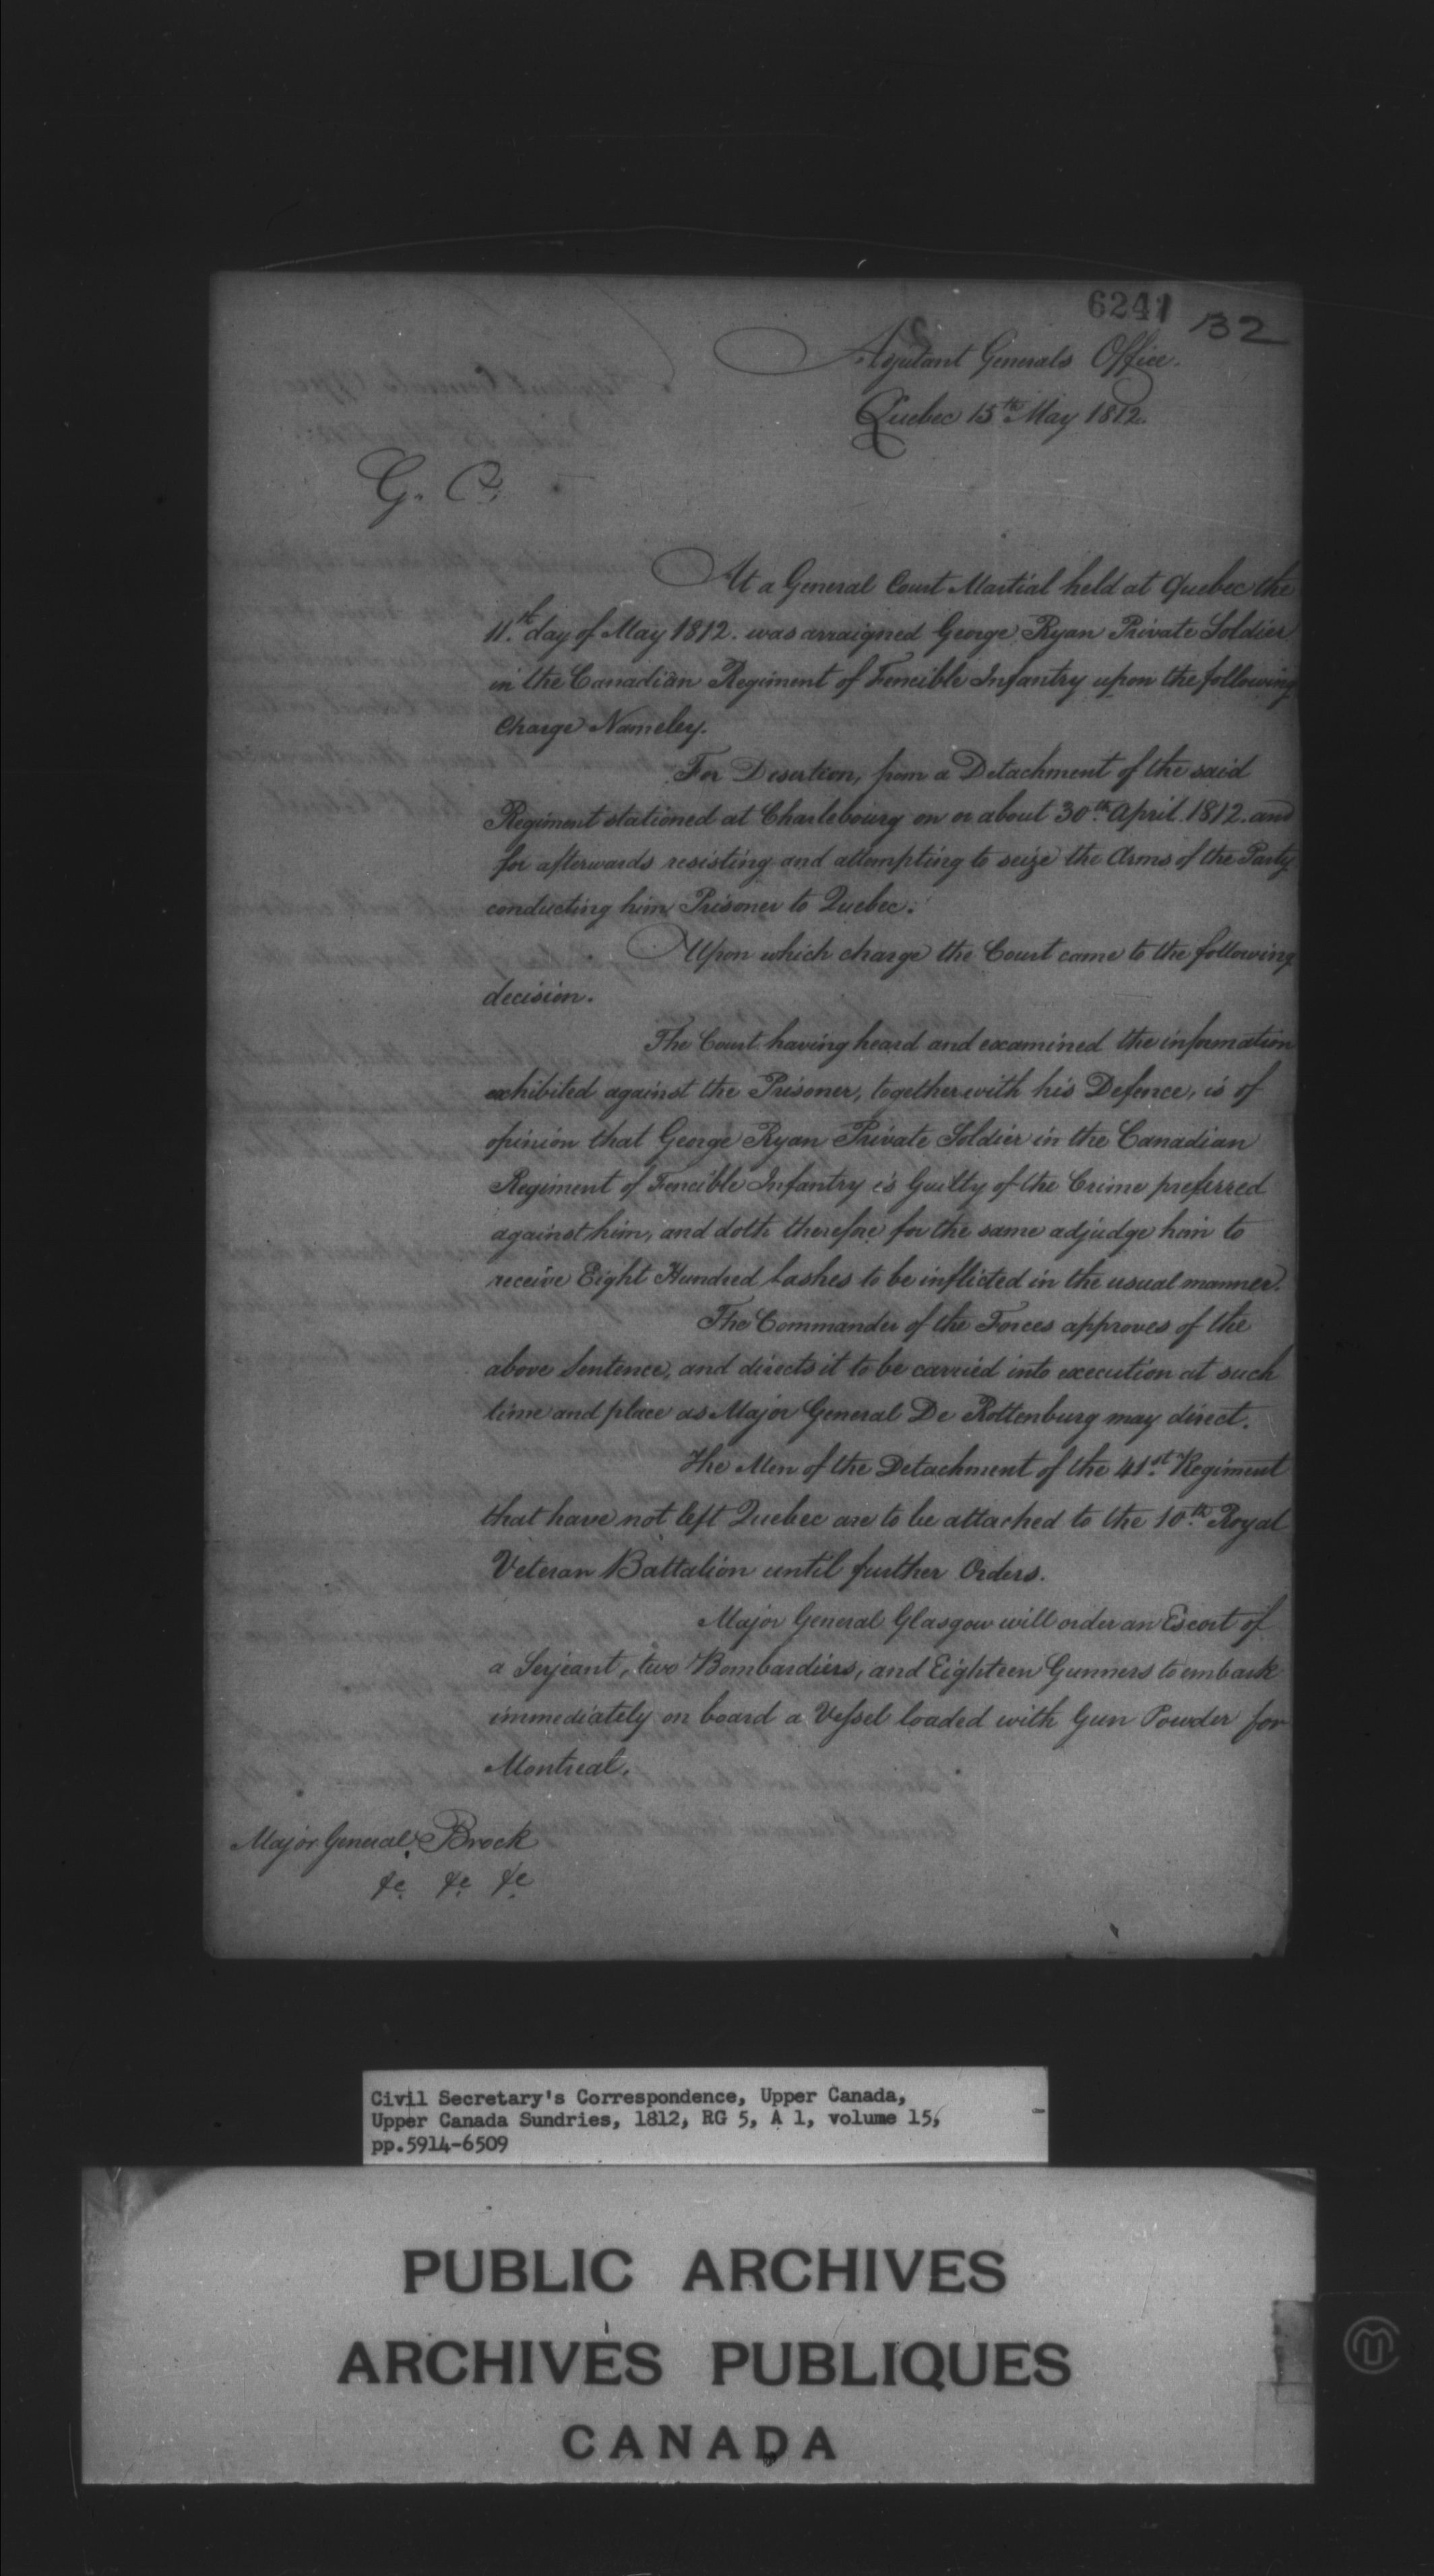 6241 32
Adjutant Generals Office.
Quebec 15th May 1812.
G. O.
At a General Court Martial held at Quebec the
11th day of May 1812. was arraigned George Ryan Private Soldier
in the Canadian Regiment of Fencible Infantry upon the following
Charge Nameley.
For Desertion, from a Detachment of the said
Regiment stationed at Charlebourg on or about 30th April 1812. and
for afterwards resisting and attempting to seize the Arms of the Party
conducting him Prisoner to Quebec.
Upon which charge the Court came to the following
decision.
The Court having heard and examined the information
exhibited against the Prisoner, together with his Defence, is of
opinion that George Ryan Private Soldier in the Canadian
Regiment of Fencible Infantry is Guilty of the Crime preferred
against him, and doth therefore for the same adjudge him to
receive Eight Hundred Lashes to be inflicted in the usual manner.
The Commander of the Forces approves of the
above Sentence, and directs it to be carried into execution at such
time and place as Major General De Rottenburg may direct.
The Men of the Detachment of the 41st Regiment
that have not left Quebec are to be attached to the 10th Royal
Veteran Battalion until further Orders.
Major General Glasgow will order an Escort of
a Serjeant, two Bombardiers, and Eighteen Gunners to embark
immediately on board a Vessel loaded with Gun Powder for
Montreal.
Major General Brock
&c &c &c
Civil Secretary's Correspondence, Upper Canada,
Upper Canada Sundries, 1812, RG 5, A 1, volume 15,
pp.5914-6509
PUBLIC ARCHIVES
ARCHIVES PUBLIQUES
CANADA